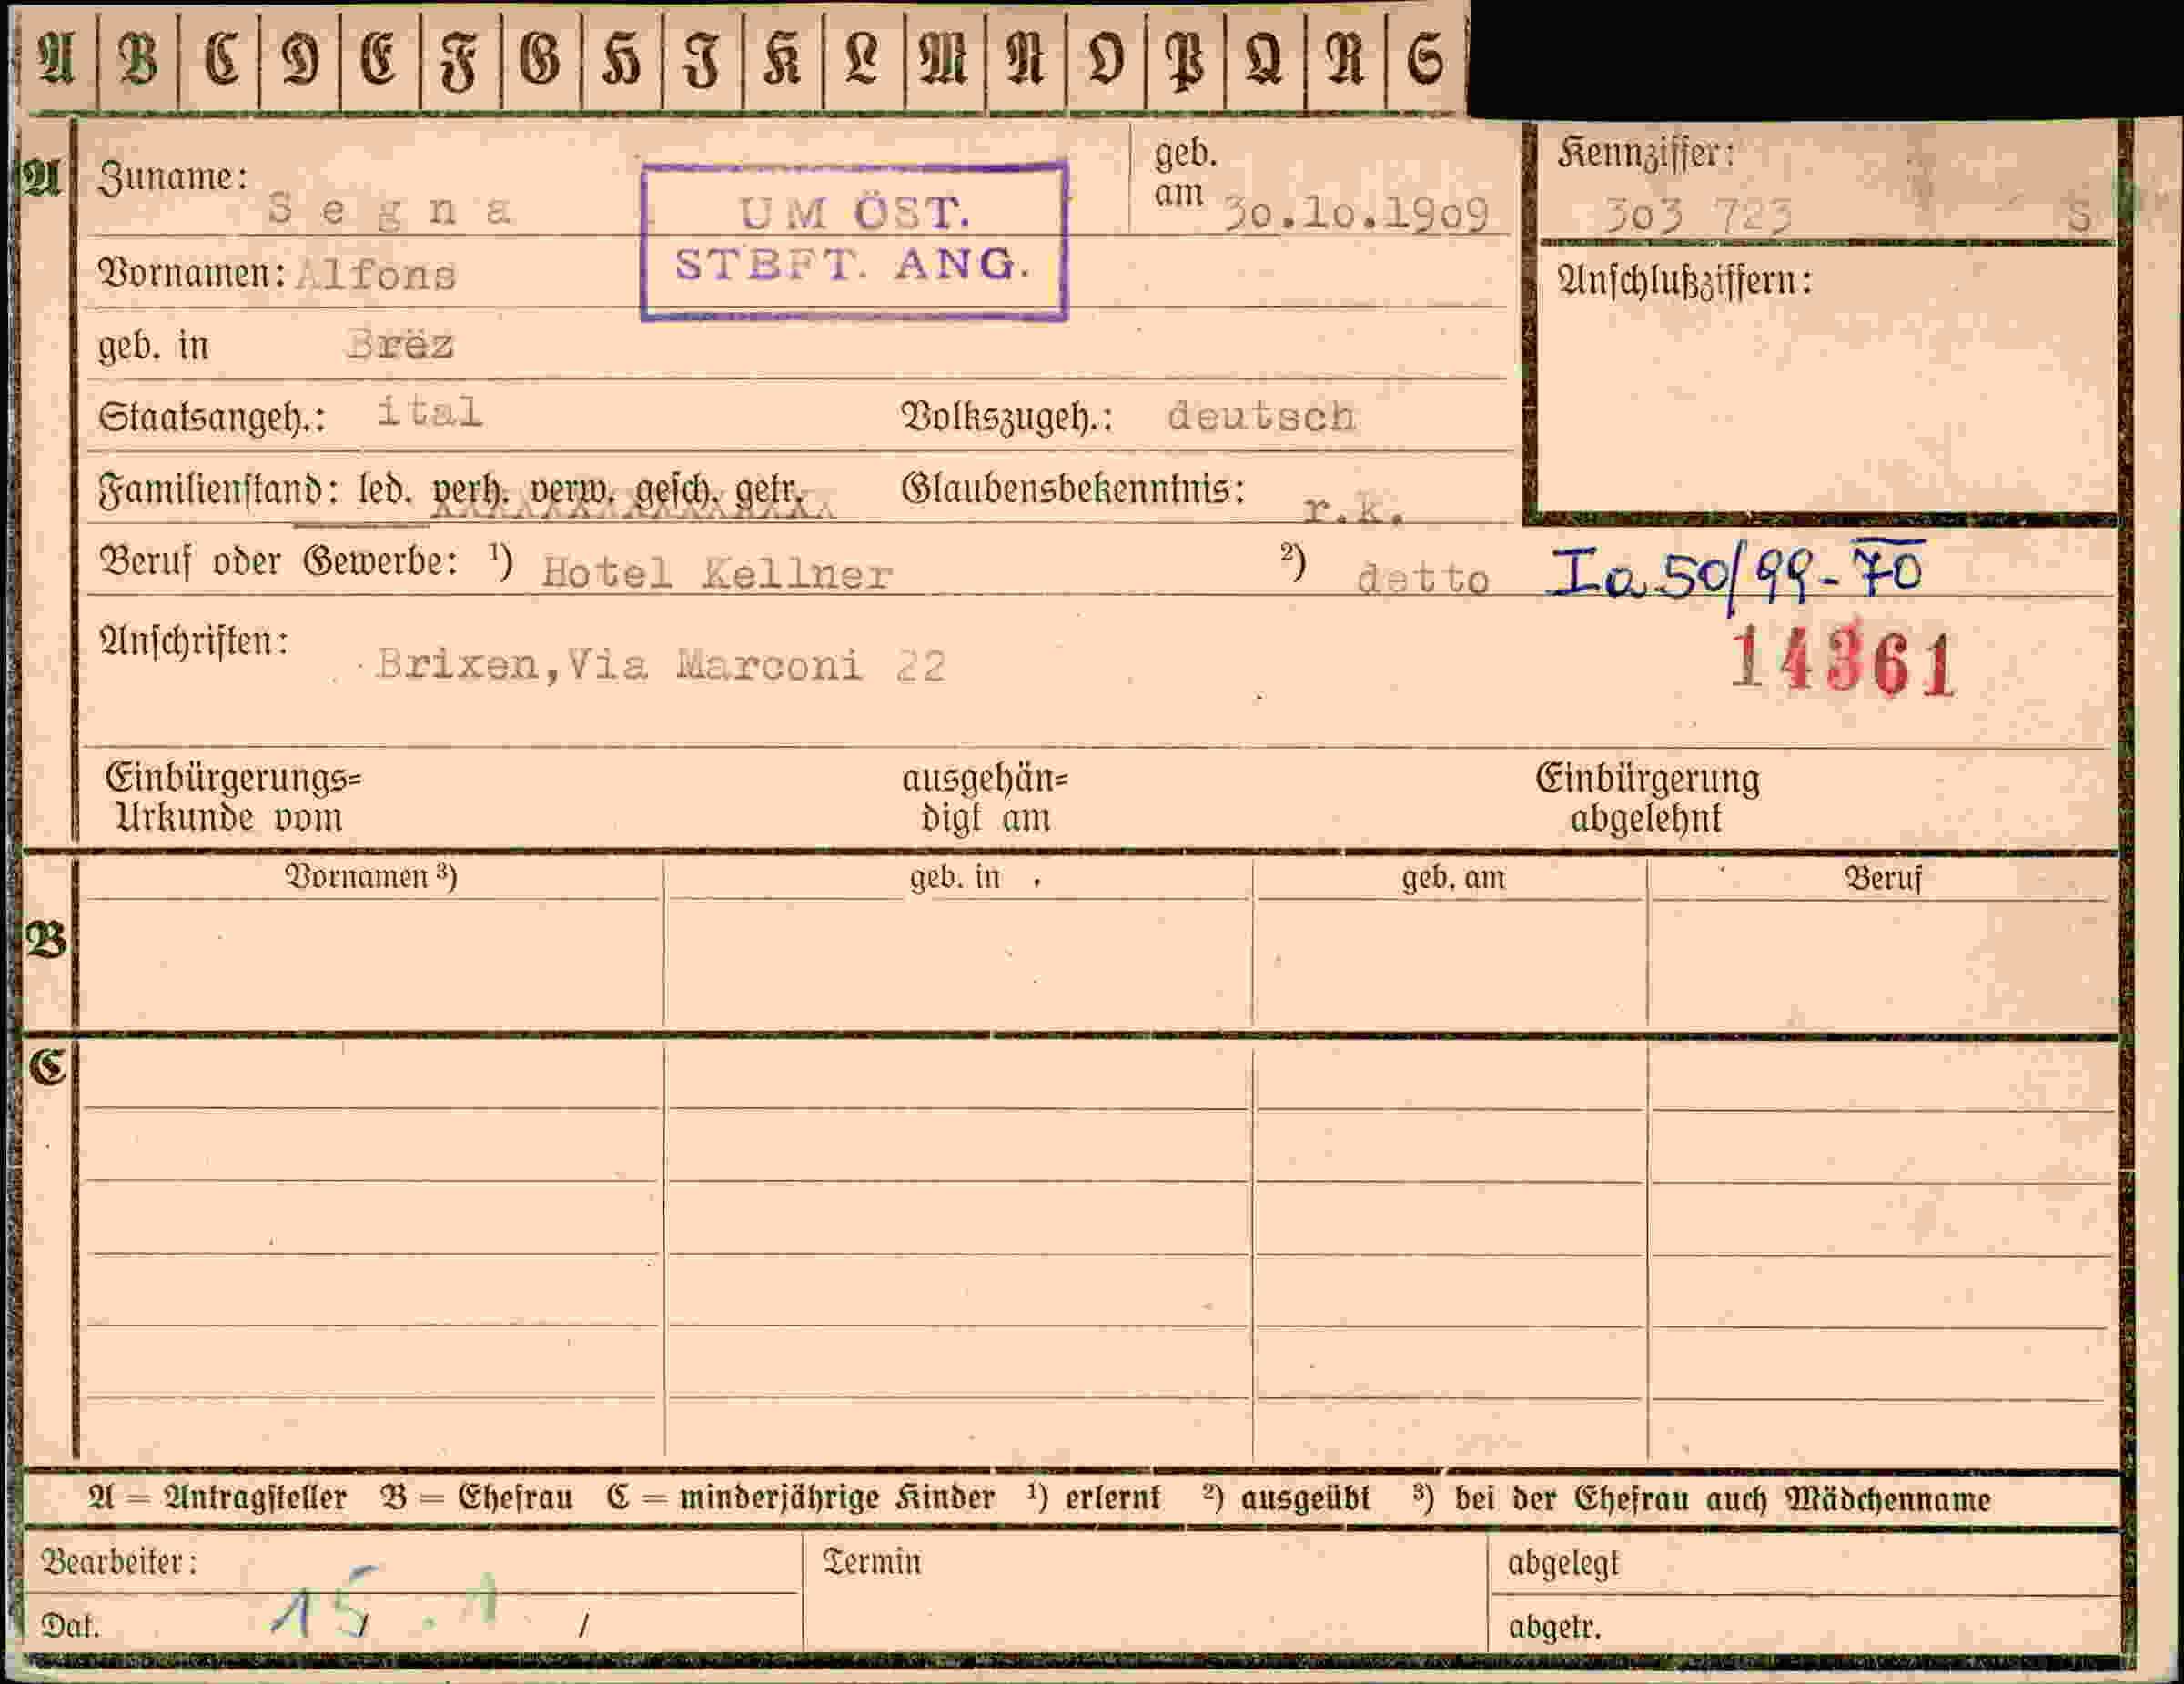 A B C D E F G H I K L M N O P Q R S
A
Zuname: Segna
UM ÖST.
STBFT. ANG.
geb. am 30.10.1909
Kennziffer:
303 723 S
Vornamen: Alfons
Anschlußziffern:
geb. in Brëz
Staatsangeh.: ital Volkszugeh.: deutsch
Familienstand: led. verh. verw. gesch. getr. Glaubensbekenntnis: r.k.
Beruf oder Gewerbe: ¹) Hotel Kellner ²) detto
Ia 50/99-70
14361
Anschriften: Brixen, Via Marconi 22
Einbürgerungs= ausgehän= Einbürgerung
Urkunde vom digt am abgelehnt
B
Vornamen ³) geb. in geb. am Beruf
C
A = Antragsteller B = Ehefrau C = minderjährige Kinder ¹) erlernt ²) ausgeübt ³) bei der Ehefrau auch Mädchenname
Bearbeiter: Termin abgelegt
Dat. 15.1 / / abgetr.